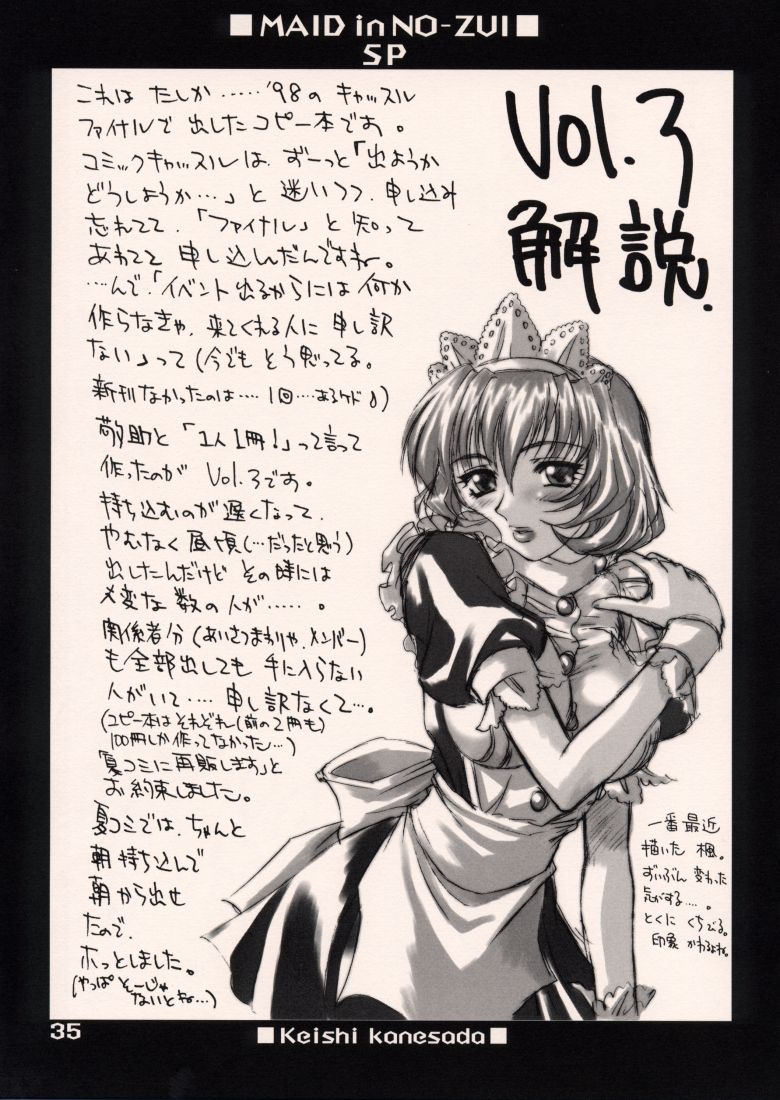 ■ MAID in NO-ZUI ■
SP
Vol.3
解説.
これは たしか……'98の キャッスル
ファイナルで 出したコピー本です。
コミックキャッスルは、ずーっと「出ようか
どうしようか…」と 迷いつつ、申し込み
忘れてて、「ファイナル」と 知って
あわてて 申し込んだんですね。
…んで、「イベント出るからには 何か
作らなきゃ、来てくれる人に 申し訳
ない」って(今でも そう思ってる。
新刊なかったのは…. 1回…あるケド)
敬助と「1人1冊!」って言って
作ったのが Vol.3です。
持ち込むのが 遅くなって、
やむなく 昼頃(…だったと思う)
出したんだけど その時には
大変な 数の 人が……。
関係者分(あいさつまわりや、メンバー)
も 全部出しても 手に入らない
人がいて…. 申し訳なくて…。
(コピー本は それぞれ(前の2冊も)
100冊しか 作ってなかった…)
「夏コミに再販します」と
お約束しました。
夏コミでは、ちゃんと
朝 持ち込んで
朝 から 出せ
たので、
ホッとしました。
(やっぱ そーじゃ
ないとね…)
一番 最近
描いた 楓。
ずいぶん 変わった
気がする….。
とくに くちびる。
印象 かわるよね。
35
■ Keishi kanesada ■